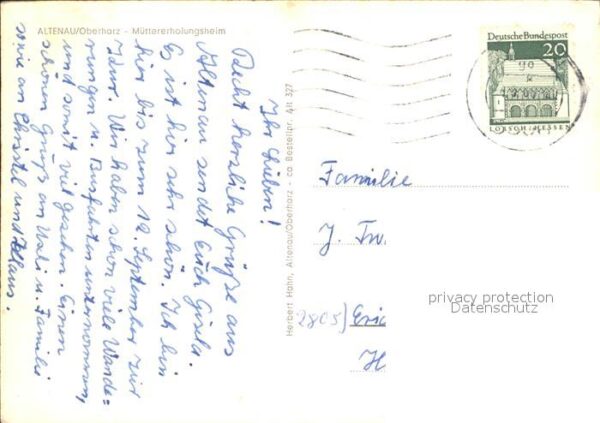 ALTENAU/Oberharz - Müttererholungsheim
Ihr Lieben!
Recht herzliche Grüße aus
Altenau sendet Euch Gisela.
Es ist hier sehr schön. Ich bin
hier bis zum 12. September zur
Kur. Wir haben schon viele Wande=
rungen u. Busfahrten unternommen,
und somit viel gesehen. Einen
schönen Gruß an Uschi u. Familie
sowie an Christel und Klaus.
Herbert Hahn, Altenau/Oberharz - ca. Bestellnr. Alt 327
Deutsche Bundespost
20
LORSCH/HESSEN
Familie
J. Tw.
2805) Eric
H
privacy protection
Datenschutz